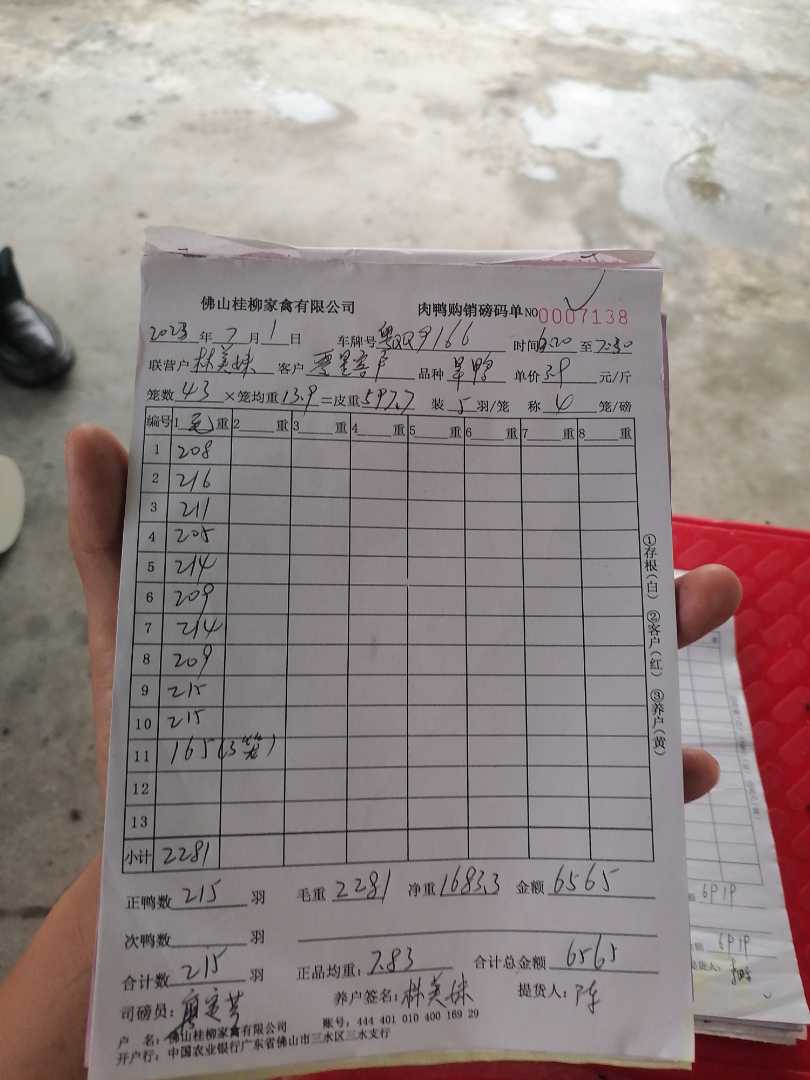 佛山桂柳家禽有限公司 肉鸭购销磅码单 NO 0007138
2023年7月1日 车牌号粤QQ9166 时间6:20至7:30
联营户林美妹 客户 品种旱鸭 单价3.9元/斤
笼数43×笼均重13.9=皮重597.7 装5羽/笼 称4笼/磅
编号 1毛重 2重 3重 4重 5重 6重 7重 8重
1 208
2 216
3 211
4 205
5 214
6 209
7 214
8 209
9 215
10 215
11 165(3笼)
12
13
小计 2281
正鸭数215羽 毛重2281 净重1683.3 金额6565
次鸭数羽
合计数215羽 正品均重:7.83 合计总金额6565
司磅员: 养户签名:林美妹 提货人:陈
户 名:佛山桂柳家禽有限公司 账号:444 401 010 400 169 29
开户行:中国农业银行广东省佛山市三水区三水支行
①存根(白) ②客户(红) ③养户(黄)
6919
6919
提货人: